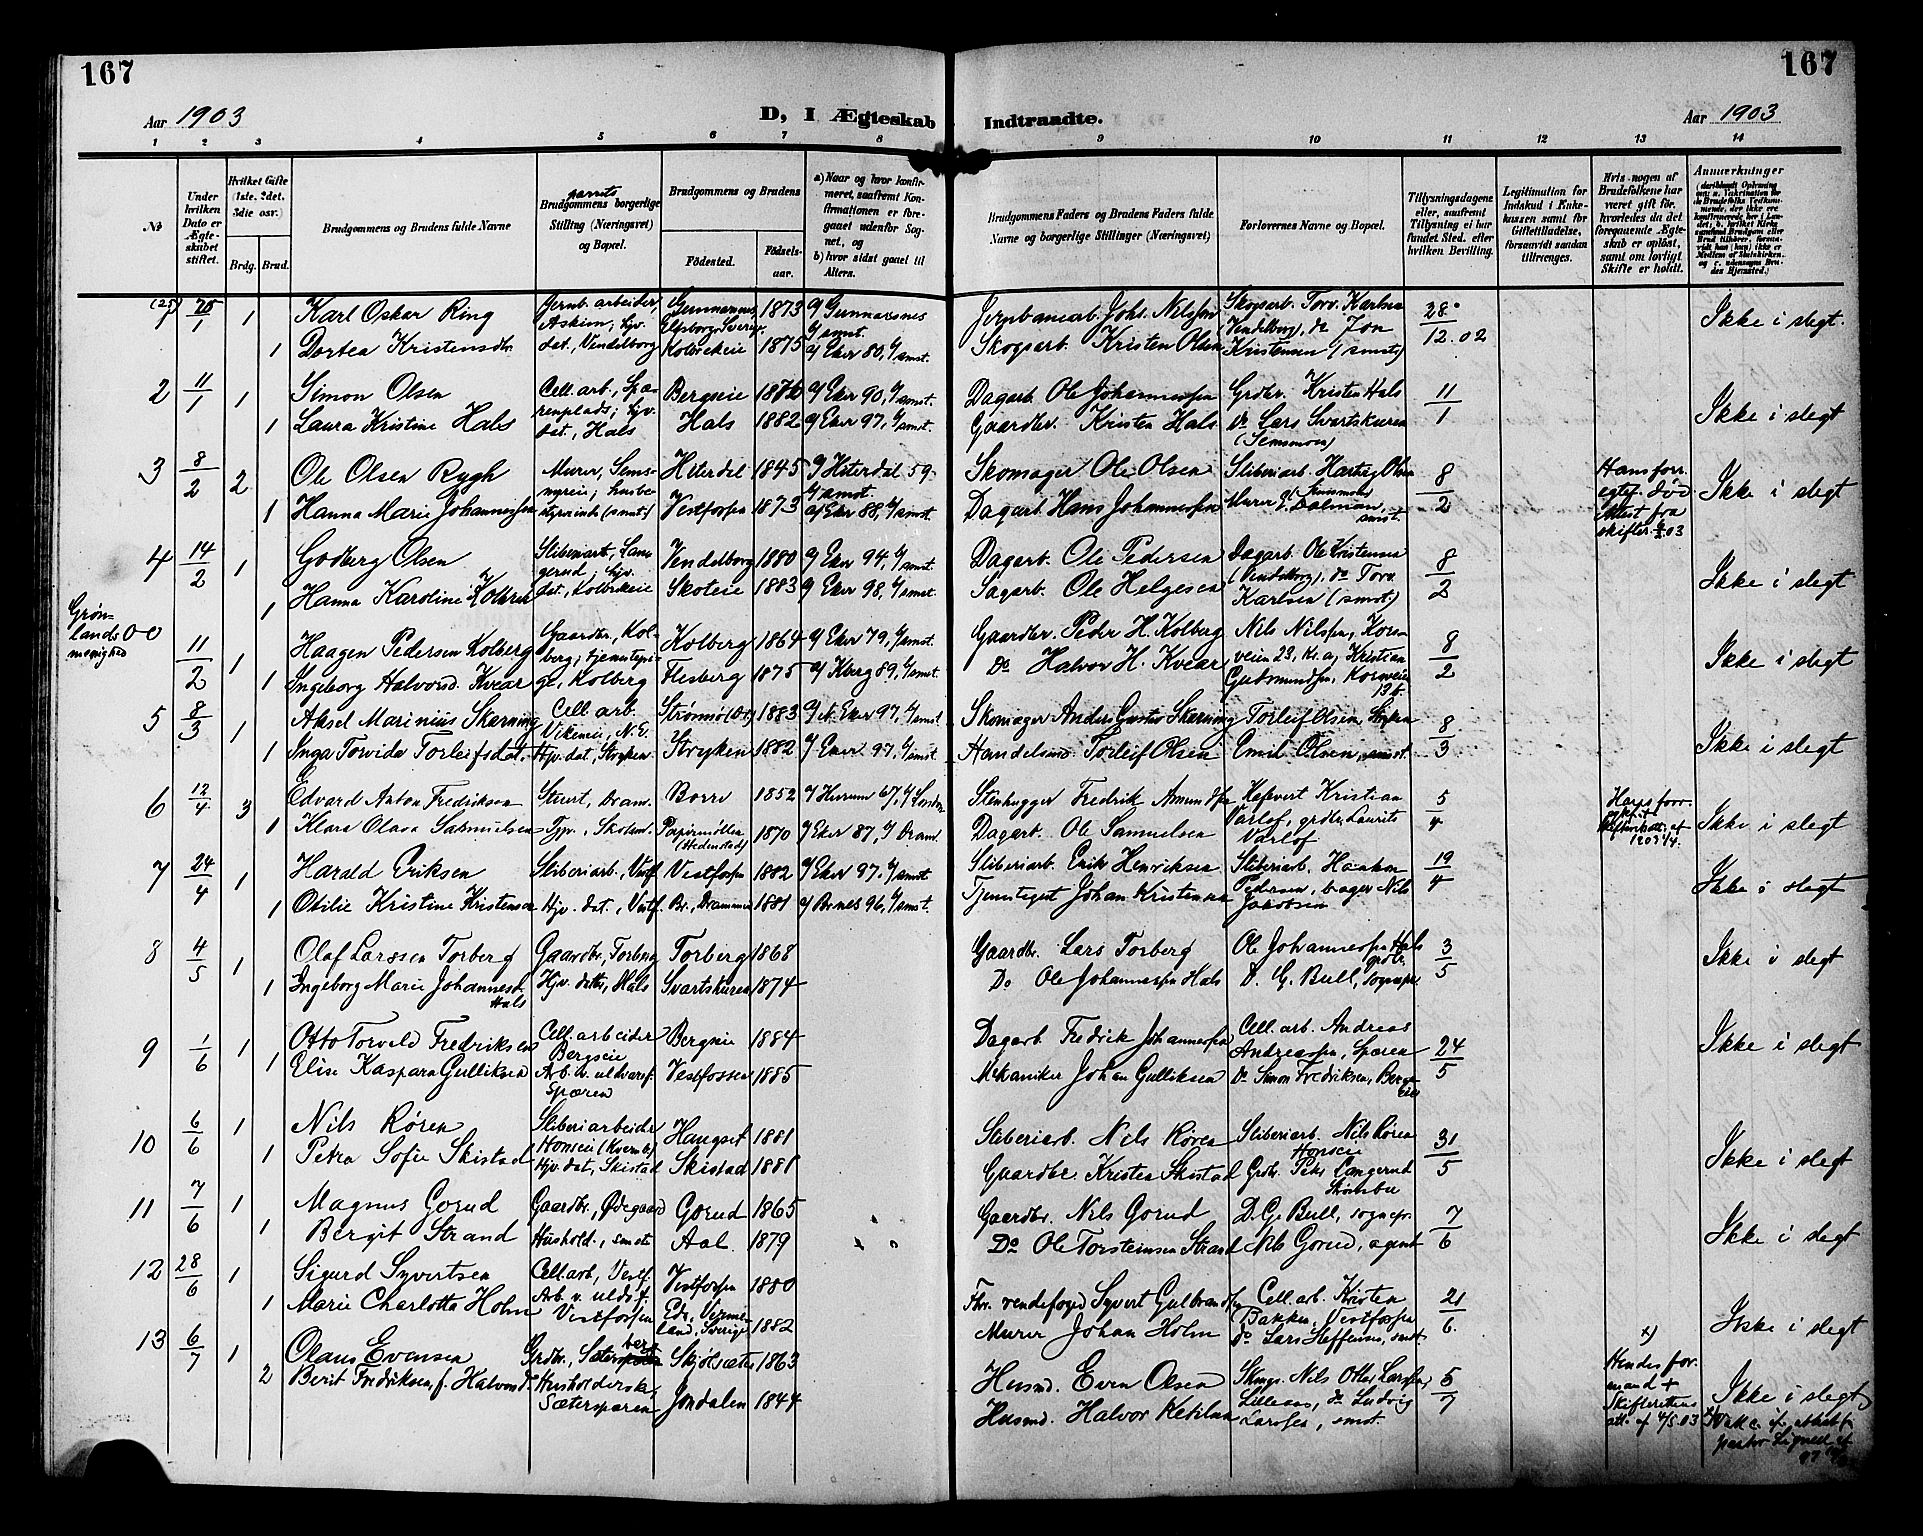 167
167
Aar 1903
D, I Ægteskab Indtraadte.
Aar 1903
1 2 3 4 5 6 7 8 9 10 11 12 13 14
№
Under hvilken Dato er Ægteskabet stiftet.
Hvilket Gifte (1ste, 2det, 3die osv.)
Brdg. Brud.
Brudgommens og Brudens fulde Navne
Brudgommens borgerlige Stilling (Næringsvei) og Bopæl.
Brudgommens og Brudens
Fødested.
Fødselsaar.
a) Naar og hvor konfirmeret, saafremt Konfirmationen er foregaaet udenfor Sognet, og
b) hvor sidst gaaet til Alters.
Brudgommens Faders og Brudens Faders fulde Navne og borgerlige Stillinger (Næringsvei)
Forlovernes Navne og Bopæl.
Tillysningsdagene eller, saafremt Tillysning ei har fundet Sted, efter hvilken Bevilling.
Legitimation for Indskud i Enkekassen samt for Giftetilladelse, forsaavidt saadan tiltrænges.
Hvis nogen af Brudefolkene har været gift før, hvorledes da det foregaaende Ægteskab er opløst, samt om lovligt Skifte er holdt.
Anmærkninger
(25) 1 25/1 1 Karl Oskar Ring Jernb. arbeider, Askim; hjv. Gunnarsnes Elfsborg Sverige 1873 g Gunnarsnes 4/ smst. Jernbanearb. Johs. Nilssen Skogsarb. Torv. Karlsen (Vendelborg), do Jon 28/12.02 Ikke i slegt.
1 Dortea Kristensdtr. dat., Vendelborg Kolbrekeie 1875 g Eker 80, 4/ smst. Skogsarb. Kristen Olsen Kristensen (smsts)
2 11/1 1 Simon Olsen Cell. arb., Spærenplads; hjv. Bergseie 1876 g Eker 90, 4/ smst. Dagarb. Ole Johannessen Grdbr. Kristen Hals 11/1 Ikke i slegt
1 Laura Kristine Hals dat., Hals Hals 1882 g Eker 97, 4/ smst. Gaardbr. Kristen Hals do Lars Svartskuren (Semsmoen)
3 8/2 2 Ole Olsen Rygh Murer, Semsmyreie; husbe- Hiterdal 1845 g Hiterdal 59. 4/ smst. Skomager Ole Olsen Sliberiarb. Hartvig Olsen 8/2 Hans forr. egtef. død Attest fra skifter. 03 Ikke i slegt
1 Hanna Marie Johannessen styrerinde (smst.) Vestfossen 1873 g Eker 88, 4/ smst. Dagarb. Hans Johannessen Murer G. Dalman, smst.
4 14/2 1 Godberg Olsen Sliberiarb., Langerud; hjv. Vendelborg 1880 g Eker 94, 4/ smst. Dagarb. Ole Pedersen Dagarb. Ole Kristensen (Vendelborg), do Torv. 8/2 Ikke i slegt
1 Hanna Karoline Kolbrek dat., Kolbrekeie Skoteie 1883 g Eker 98, 4/ smst. Sagarb. Ole Helgesen Karlsen (smst.)
Grønlands menighed 00 11/2 1 Haagen Pedersen Kolberg Gaardbr., Kolberg; tjenestepi- Kolberg 1864 g Eker 79, 4/ smst. Gaardbr. Peder H. Kolberg Nils Nilssen, Korsveien 23, Kr.a, Kristian 8/2 Ikke i slegt
1 Ingeborg Halvorsd. Kvear ge, Kolberg Flesberg 1875 g Kberg 89, 4/ smst. Do Halvor H. Kvear Gudmundsen, Korsveien 13 b.
5 8/3 1 Aksel Marinius Skerning Cell. arb. Vikeneie, N.E. Strømmø 1883 g N. Eker 97, 4/ smst Skomager Anders Gustav Skerning Torleif Olsen, Stryken 8/3 Ikke i slegt
1 Inga Torvida Torleifsdat. Hjv. dat., Stryken Stryken 1882 g Eker 97, 4/ smst Handelsmd. Torleif Olsen Emil Olsen, smst.
6 12/4 3 Edvard Anton Fredriksen Stuert, Dram. Borre 1852 g Hurum 67, 4/ Stenhugger Fredrik Amundsen Kristian Varlof, grdbr. Laurits 5/4 Hans forr. 1903 Ikke i slegt
1 Klara Olava Samuelsen Tjv., Skotsm. Papirmøllen (Hedenstad) 1870 g Eker 87, 4/ Dram. Dagarb. Ole Samuelsen Varlof
7 24/4 1 Harald Eriksen Sliberiarb., Vestf Vestfossen 1882 g Eker 97, 4/ smst Sliberiarb. Erik Henriksen Sliberiarb. Haakon 19/4 Ikke i slegt
1 Otilie Kristine Kristensen Hjv. dat., Vestf. Br., Drammen 1881 g Brnes 96, 4/ smst. Tjenestegut Johan Kristensen Pedersen, bager Nils Jakobsen
8 4/5 1 Olaf Larssen Torberg Gaardbr., Torberg Torberg 1868 Gaardbr. Lars Torberg Ole Johannessen Hals grdbr. 3/5 Ikke i slegt
1 Ingeborg Marie Johannesd. Hals Hjv. datter, Hals Svartskuren 1874 Do Ole Johannessen Hals D. G. Bull, sognepr.
9 1/6 1 Otto Torvald Fredriksen Cell. arbeider Bergseie Bergseie 1884 Dagarb. Fredrik Johannessen Cell. arb. Andreas Andreassen, Spæren 24/5 Ikke i slegt
1 Elise Kaspara Gulliksen Arb. v. uldvaref. Spæren Vestfossen 1885 Mekaniker Johan Gulliksen do Simon Fredriksen, Bergseie
10 6/6 1 Nils Røren Sliberiarbeider Honseie Haugset 1881 Sliberiarb. Nils Røren Sliberiarb. Nils Røren Honseie 31/5 Ikke i slegt
1 Petra Sofie Skistad Hjv. dat., Skistad Skistad 1881 Gaardbr. Kristen Skistad Grdbr. Peder Langerud Strømsbu
11 7/6 1 Magnus Gorud Gaardbr., Ødegaard Gorud 1865 Gaardbr. Nils Gorud D. G. Bull, sognepr. 7/6 Ikke i slegt
1 Bergit Strand Hushold., smsts Aal. 1879 Do Ole Torsteinsen Strand Nils Gorud, agent
12 28/6 1 Sigurd Syvertsen Cell. arb., Vestf. Vestfossen 1880 Fhv. vendefoged Syvert Gulbrandsen Cell. arb. Kristen Bakken, Vestfossen 21/6 Ikke i slegt
1 Marie Charlotta Holm Arb. v. uldv.f. Vestfossen Eda, Vermeland, Sverige 1882 Murer Johan Holm do Lars Steffensen, smst.
13 6/7 1 Olaus Evensen Grdbr., Sæterberg Skjølsæter 1863 Husmd. Even Olsen Skogs. Nils Otto Larssen, Lilleaas, do Ludvig 5/7 x) Hendes forr. mand + Skifterettens att. af 4/5.03 Ikke i slegt
2 Berit Fredriksen, f. Halvorsd. Husholderske, Sætersparen Jondalen 1844 Husmd. Halvor Ketilsen Larssen, smst. x) Vakc. ef. attest f. pastor